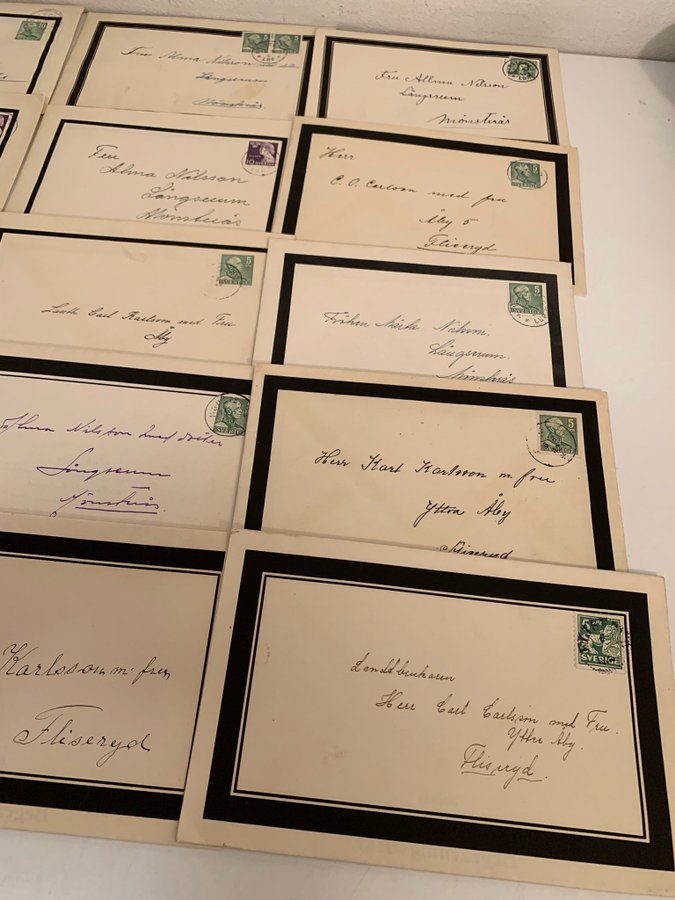 10
Fru Alma Nilsson
Långserum
Mönsterås
Fru Allma Nilsson
Långserum
Mönsterås
Fru
Alma Nilsson
Långserum
Mönsterås
10 SVERIGE
Herr
C. O. Carlsson med fru
Åby 5
Fliseryd
5
SVERIGE
Lantb Carl Karlsson med Fru
Åby
5
SVERIGE
Fröken Märta Nilsson.
Långserum.
Mönsterås
5
SVERIGE
Alma Nilsson med dotter
Långserum
Mönsterås
Herr Karl Karlsson m. fru
Yttra Åby
Fliseryd
5
Karlsson m. fru
Fliseryd
Landtbrukaren
Herr Carl Carlsson med Fru.
Yttre Åby.
Fliseryd.
5
SVERIGE